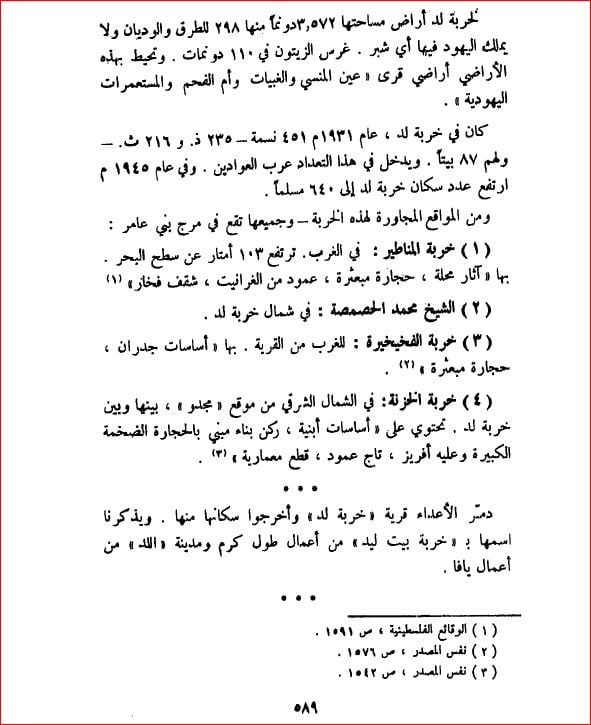 لخربة لد أراض مساحتها ٣,٥٧٢دونماً منها ٢٩٨ للطرق والوديان ولا
يملك اليهود فيها أي شبر . غرس الزيتون في ١١٠ دونمات . وتحيط بهذه
الأراضي أراضي قرى « عين المنسي والغبيات وأم الفحم والمستعمرات
اليهودية » .
كان في خربة لد ، عام ١٩٣١م ٤٥١ نسمة – ٢٣٥ ذ. و ٢١٦ ث. –
ولهم ٨٧ بيتاً . ويدخل في هذا التعداد عرب العوادين . وفي عام ١٩٤٥ م
ارتفع عدد سكان خربة لد إلى ٦٤٠ مسلماً .
ومن المواقع المجاورة لهذه الخربة – وجميعها تقع في مرج بني عامر :
( ١ ) خربة المناطير : في الغرب. ترتفع ١٠٣ أمتار عن سطح البحر .
بها « آثار محلة ، حجارة مبعثرة ، عمود من الغرانيت ، شقف فخار» (١)
( ٢ ) الشيخ محمد الحصمصة : في شمال خربة لد .
( ٣ ) خربة الفخيخيرة : للغرب من القرية . بها « أساسات جدران ،
حجارة مبعثرة » (٢) .
( ٤ ) خربة الخزنة: في الشمال الشرقي من موقع « مجدو » ، بينها وبين
خربة لد . تحتوي على « أساسات أبنية ، ركن بناء مبني بالحجارة الضخمة
الكبيرة وعليه أفريز ، تاج عمود ، قطع معمارية » (٣) .
• • •
دمّر الأعداء قرية « خربة لد» وأخرجوا سكانها منها . ويذكرنا
اسمها بـ « خربة بيت ليد» من أعمال طول كرم ومدينة « اللد» من
أعمال يافا .
• • •
( ١ ) الوقائع الفلسطينية ، ص ١٥٩١ .
( ٢ ) نفس المصدر ، ص ١٥٧٦ .
( ٣ ) نفس المصدر ، ص ١٥٤٢ .
٥٨٩